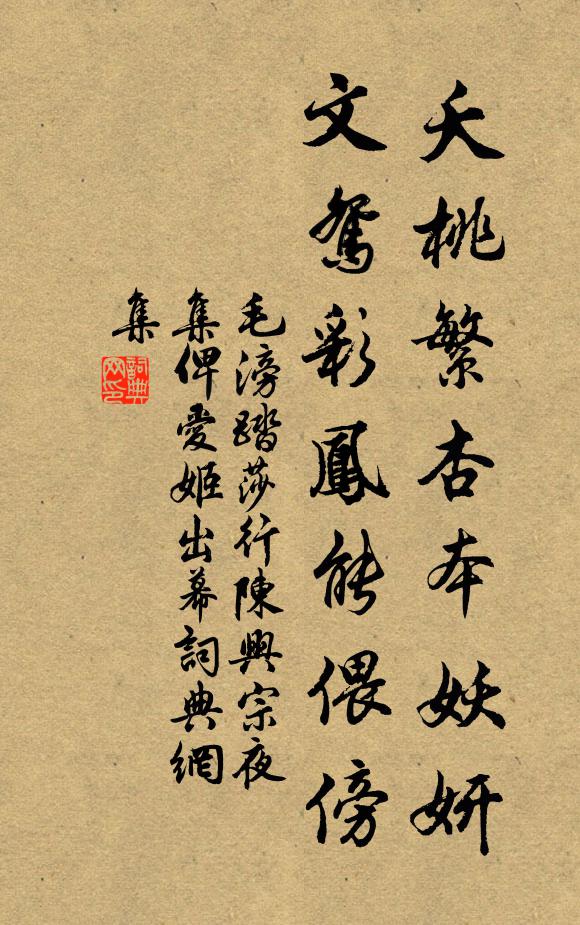 夭桃繁杏本妖妍
文鴛彩鳳能偎傍
毛滂踏莎行陳興宗夜
集俾愛姬出幕詞典網
集
詞典
网印